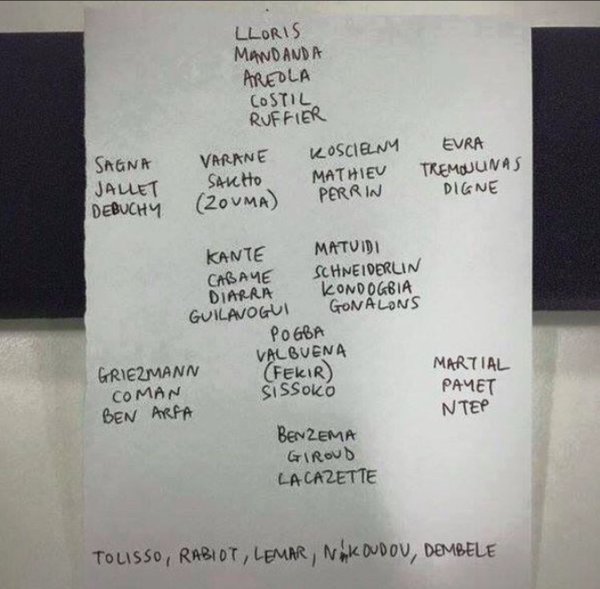 LLORIS
MANDANDA
AREOLA
COSTIL
RUFFIER
SAGNA
JALLET
DEBUCHY
VARANE
SAKHO
(ZOUMA)
KOSCIELNY
MATHIEU
PERRIN
EVRA
TREMOULINAS
DIGNE
KANTE
CABAYE
DIARRA
GUILAVOGUI
MATUIDI
SCHNEIDERLIN
KONDOGBIA
GONALONS
POGBA
VALBUENA
(FEKIR)
SISSOKO
GRIEZMANN
COMAN
BEN ARFA
MARTIAL
PAYET
NTEP
BENZEMA
GIROUD
LACAZETTE
TOLISSO, RABIOT, LEMAR, NKOUDOU, DEMBELE